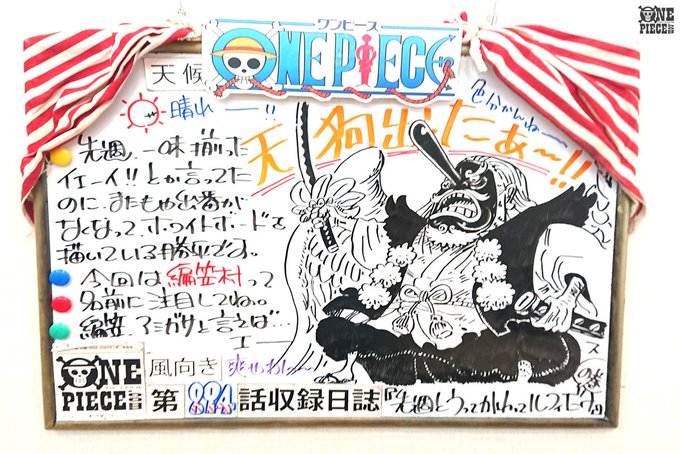 ワンピース
ONE PIECE
ONE PIECE
天候
晴れー!!
色分かんねー
天狗出たぁ〜!!
先週、一味揃った
イエーイ!!とか言ってた
のに、またもや出番が
なくなってホワイトボードを
描いている勝平です。
今回は編笠村って
名前に注目してね。
編笠…アミガサと言えば…
エー
ONE PIECE
風向き
第894話収録日誌
先週とうってかわって